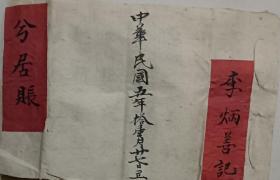 李炳善記
中華民國五年拾月廿日立
兮居賬